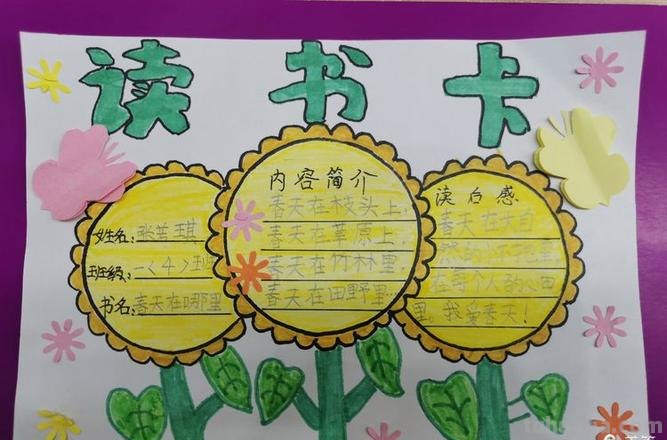 读书卡
姓名:
班级: 一〈4〉班
书名: 春天在哪里
内容简介
春天在枝头上,
春天在草原上,
春天在竹林里,
春天在田野里.
读后感
春天在
然的
在每个人的心田
里,我爱春天!